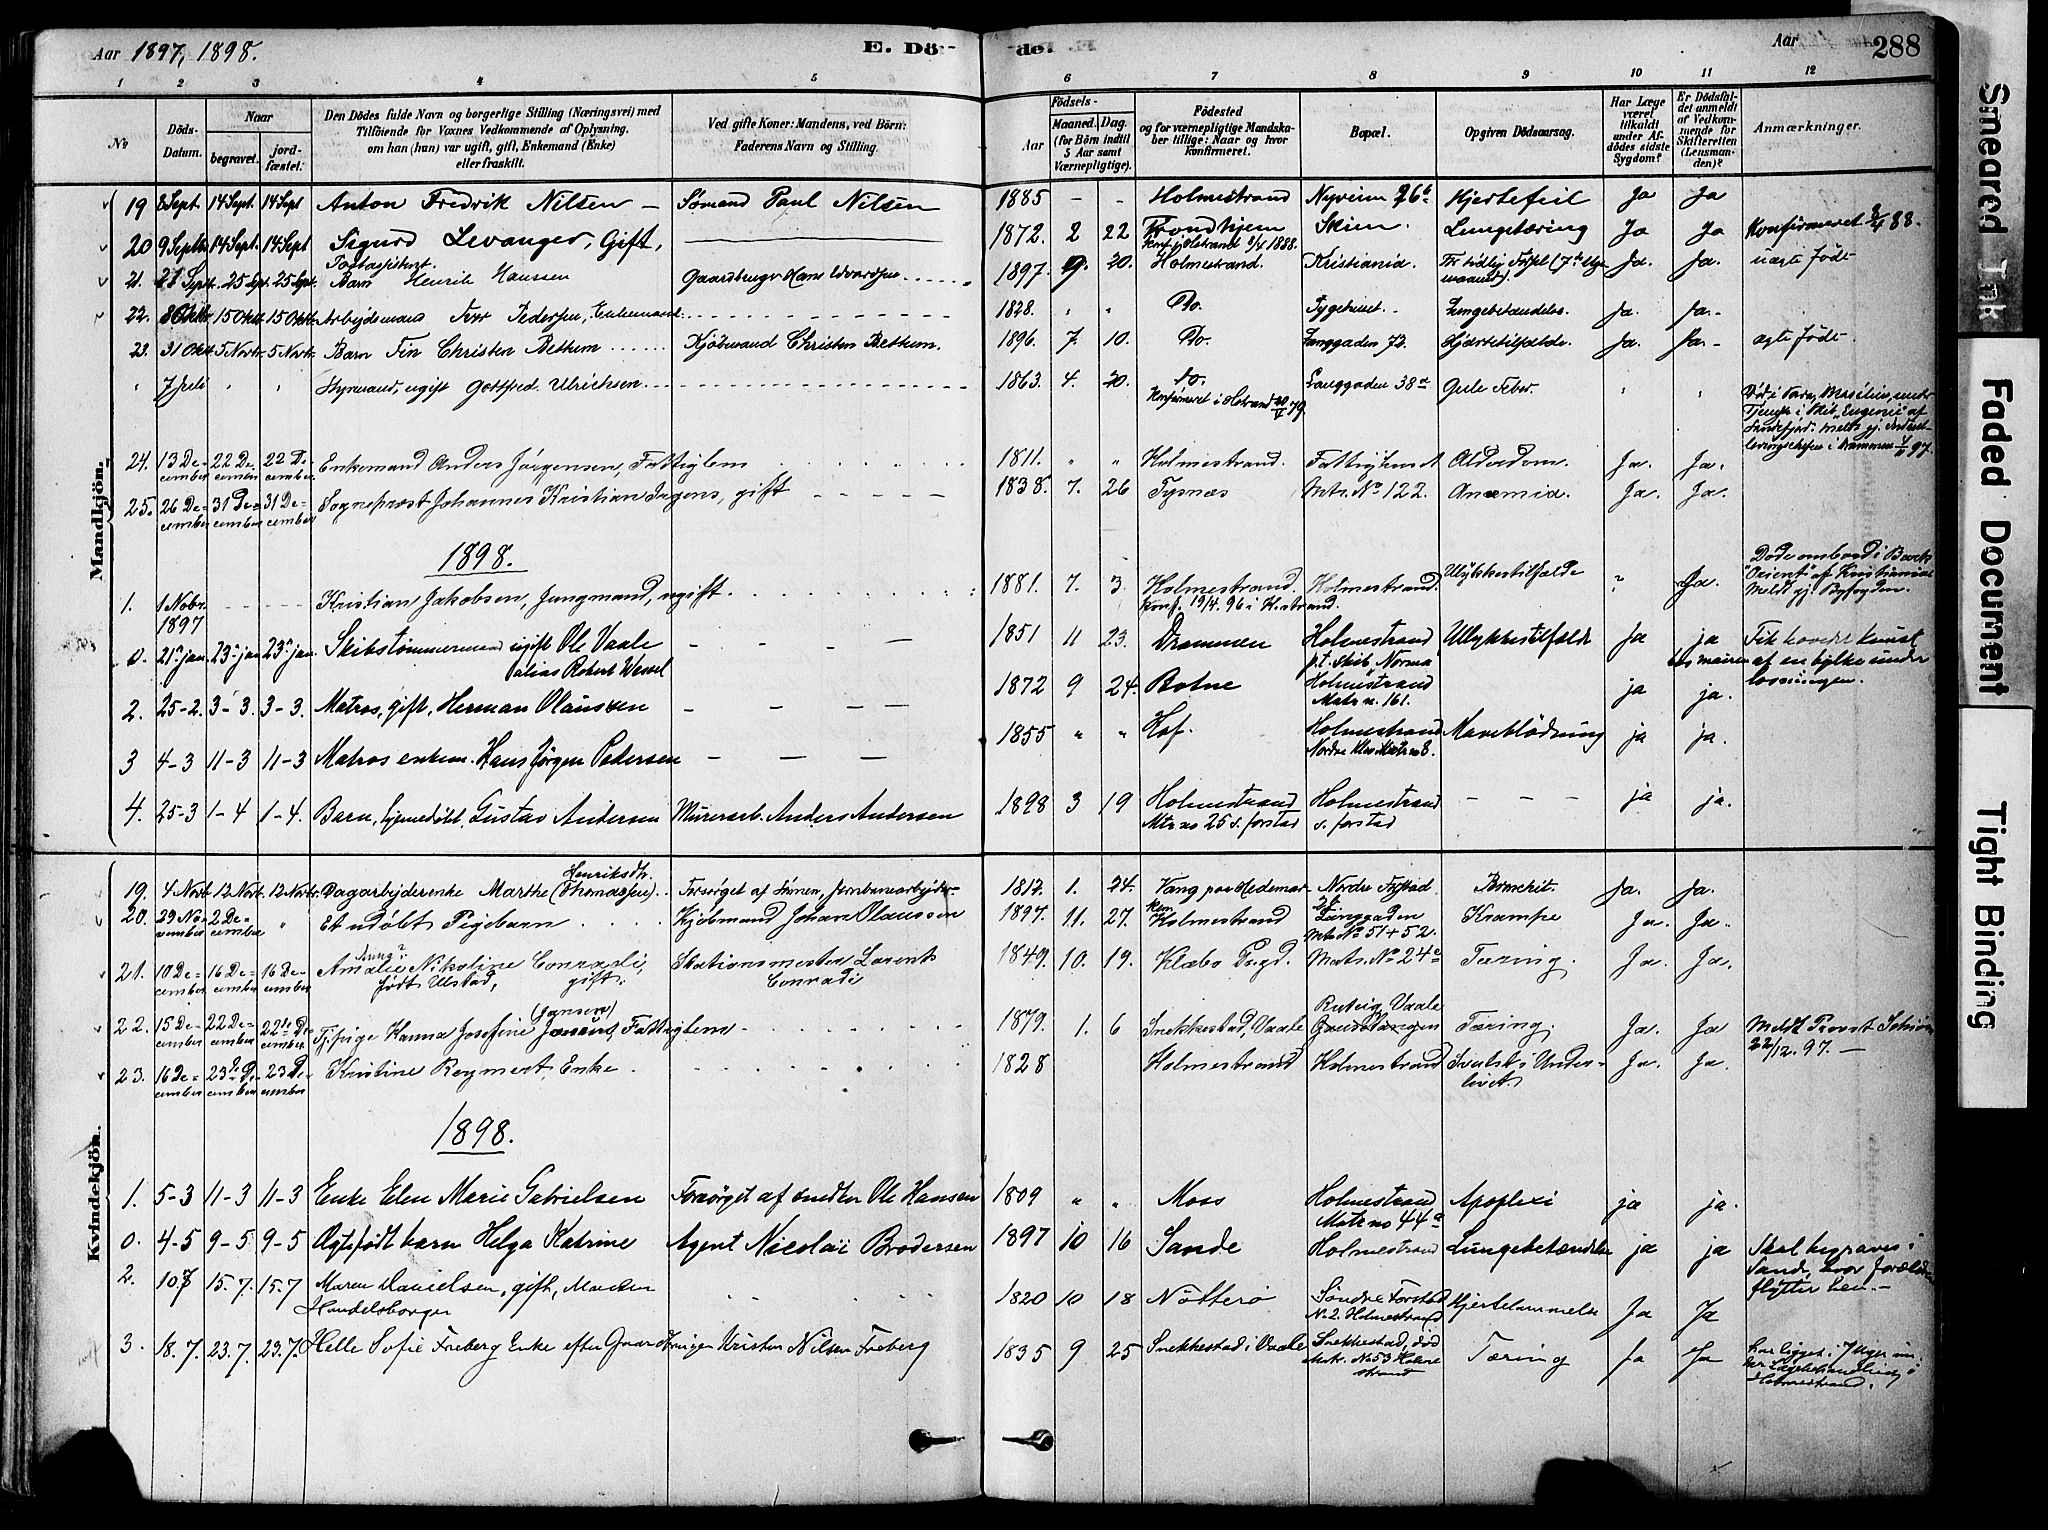 Aar 1897, 1898.
E. Dö-
de.
Aar
288
1 2 3 4 5
6 7 8 9 10 11 12
No
Döds-Datum.
Naar
begravet.
jord-fæstet.
Den Dödes fulde Navn og borgerlige Stilling (Næringsvei) med
Tilföiende for Voxnes Vedkommende af Oplysning,
om han (hun) var ugift, gift, Enkemand (Enke)
eller fraskilt.
Ved gifte Koner: Mandens, ved Börn:
Faderens Navn og Stilling.
Födsels-
Aar
Maaned. Dag.
(for Börn indtil
5 Aar samt
Værnepligtige).
Födested
og for værnepligtige Mandska-
ber tillige: Naar og hvor
konfirmeret.
Bopæl.
Opgiven Dödsaarsag.
Har Læge
været
tilkaldt
under Af-
dödes sidste
Sygdom?
Er Dödsfal-
det anmeldt
af Vedkom-
mende for
Skifteretten
(Lensman-
den)?
Anmærkninger.
Mandkjön.
19 8 Sept 14 Sept. 14 Sept Anton Fredrik Nilsen – Sömand Paul Nilsen 1885 – – Holmestrand Nyveien 76 b Hjertefeil Ja Ja
20 9 Septb 14 Sept. 14 Sept Sigurd Levanger, Gift, 1872. 2 22 Trondhjem Skien. Lungetæring Ja Ja Konfirmeret 8/4 88.
Konf. i Holstrand 8/4 1888.
21. 21 Sept. 25 Sept. 25 Sept. Barn Henrik Hansen Gaardbruger Hans Edvardsen 1897. 9. 20. Holmestrand. Kristiania. For tidlig Födsel (7de Maaned). Ja. Ja. uægte födt
22. 8 Oktbr 15 Oktb 15 Oktb Arbejdsmand Pedersen, Enkemand 1828. " " Do. Lungebetændelse. Ja. Ja.
23. 31 Oktb 5 Novbr. 5 Novbr. Barn Fin Christen Bettum Kjöbmand Christen Bettum. 1896. 7. 10. Do. Langgaden 72. Hjærtetilfælde. Ja. Ja. ægte födt.
" 7 Juli " " Styrmand, ugift Gotfred Ulrichsen 1863. 4. 20. Do. Langgaden 38a Gule Feber. " "
Konfirmeret i Holstrand 20/4 79.
Död i Para, Brasilien, under
Tjeneste i Skib "Eugenie" af
Sandefjord.
i Drammen 97.
24. 13 De-cember 22 De-cember 22 De-cember Enkemand Anders Jörgensen, Fattiglem 1811. " " Holmestrand. Fattighuset Alderdom. Ja. Ja.
25. 26 De-cember 31 De-cember 31 De-cember Sogneprost Johannes Kristian Irgens, gift 1838. 7. 26 Tysnæs Matr. No 122. Anæmia. Ja. Ja.
1898.
1. 1 Nobr. 1897 Kristian Jakobsen, Jungmand, ugift. 1881. 7. 3 Holmestrand. Holmestrand. Ulykkestilfælde " Ja.
Konf. 19/4. 96 i Hstrand.
Döde ombord i Bark
"Orient" af Kristiania
Meldt gj. Byfogden.
0. 21 jan. 23 jan. 23 jan. Skibstømmermand ugift Ole Vaale 1851 11 23. Drammen Holmestrand Ulykkestilfælde Ja ja
alias Robert Wessel
p.t. skib "Norma"
Fik hovedet knust
af en bjelke under
losningen.
2. 25-2. 3-3. 3-3. Matros, gift, Herman Olaussen 1872 9 24. Botne Holmestrand Matr n. 161. ja ja.
3 4-3 11-3 11-3 Matros enkem. Hans Jörgen Pedersen 1855 " " Hof. Holmestrand Maveblödning ja ja.
4. 25-3 1-4 1-4. Barn, hjemmedöbt, Gustav Andersen Murerarb. Anders Andersen 1898 3 19 Holmestrand Holmestrand – – – ja ja.
Matr no 25 s. forstad s. forstad
Kvindekjön.
19. 4 Novb 12 Novb. 12 Novbr. Dagarbejderenke Marthe Henriksdtr. (Thomassen) Forsörget af Sönnen, Jernbanearbejder 1812. 1. 24. Vang paa Hedemar-ken Nordre Forstad Bronchit. Ja. Ja.
20. 29 No-vember 2 De-cember " Et udöbt Pigebarn Kjöbmand Johan Olaussen 1897. 11. 27. Holmestrand Langgaden Matr No 51 + 52. Krampe Ja. Ja.
21. 10 De-cember 16 De-cember 16 De-cember Amalie Nikoline Conradi, Stationsmester Laurents Conradi 1849. 10. 19. Klæbo Prgd. Matr. No 24a Tæring. Ja. Ja.
födt Ulstad, gift.
22. 15 De-cember 22 De-cember 22de De-cember Tj.pige Hanna Josefine (Jansen) Fattiglem 1879. 1. 6 Snekkestad, Vaale Tæring. Ja. Ja Meldt Provst Schiörn
22/12. 97. –
23. 16 De-cember 23 De-cember 23 De-cember Kristine Reymert, Enke. 1828 Holmestrand Holmestrand Svulst i Under-livet. Ja. Ja.
1898.
1. 5-3 11-3 11-3 Enke Elen Marie Gabrielsen Forsörget af smeden Ole Hansen 1809 " " Moss Holmestrand Matr no 44a Apoplexi ja ja.
0. 4-5 9-5 9-5 Ægtefödt barn Helga Katrine Agent Nicolai Brodersen 1897 10 16 Sande Holmestrand Lungebetændelse ja ja Skal begraves i
Sande, hvor forældr.
flytter hen. –
2. 10.7 15.7. 15.7 Maren Danielsen, gift, Manden Handelsborger 1820 10 18 Nötterö Söndre Forstad No 2. Holmestrand Hjertelammelse Ja Ja
3. 18.7. 23.7. 23.7. Helle Sofie Freberg Enke efter Gaardbruger Kristen Nilsen Freberg 1835 9 25 Snekkestad i Vaale Snekkestad, död Matr. No 53 Holmestrand Tæring Ja Ja
Har ligget i 7 Uger un-
der Lægebehandling i
Holmestrand.
Smeared Ink
Faded Document
Tight Binding